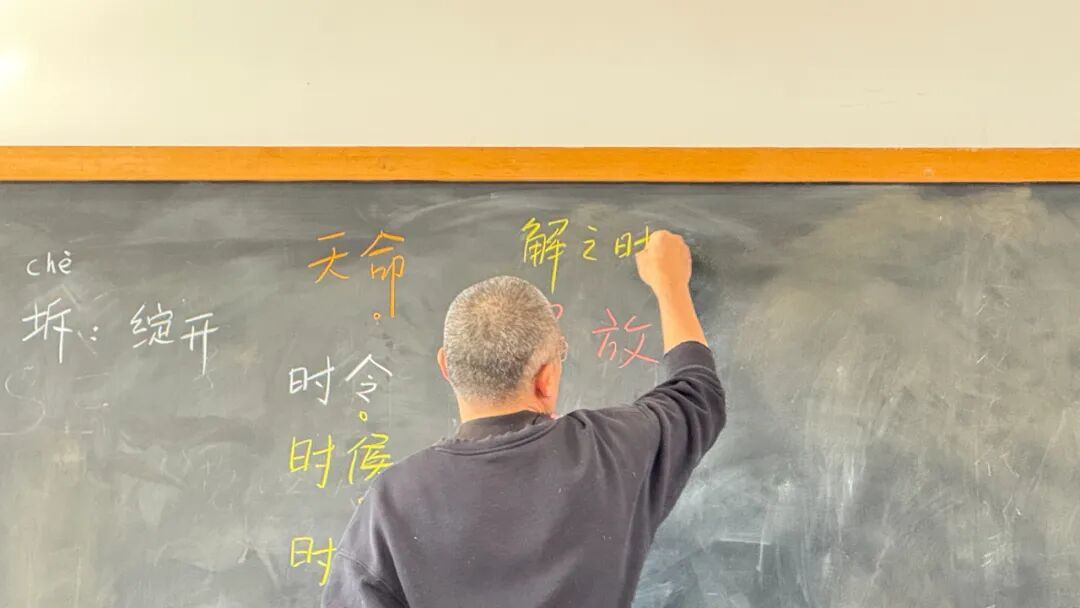 chè
坼：绽开
天命
时令
时候
时
解之时
放